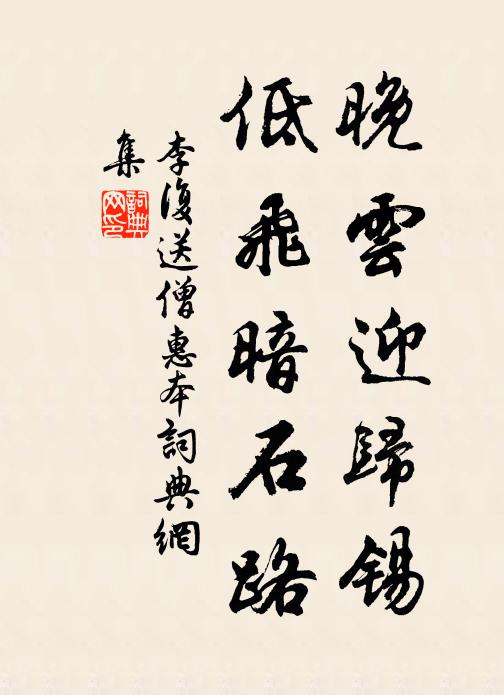 晚雲迎歸錫
低飛暗石路
李復送僧惠本詞典網
集
詞典
网印